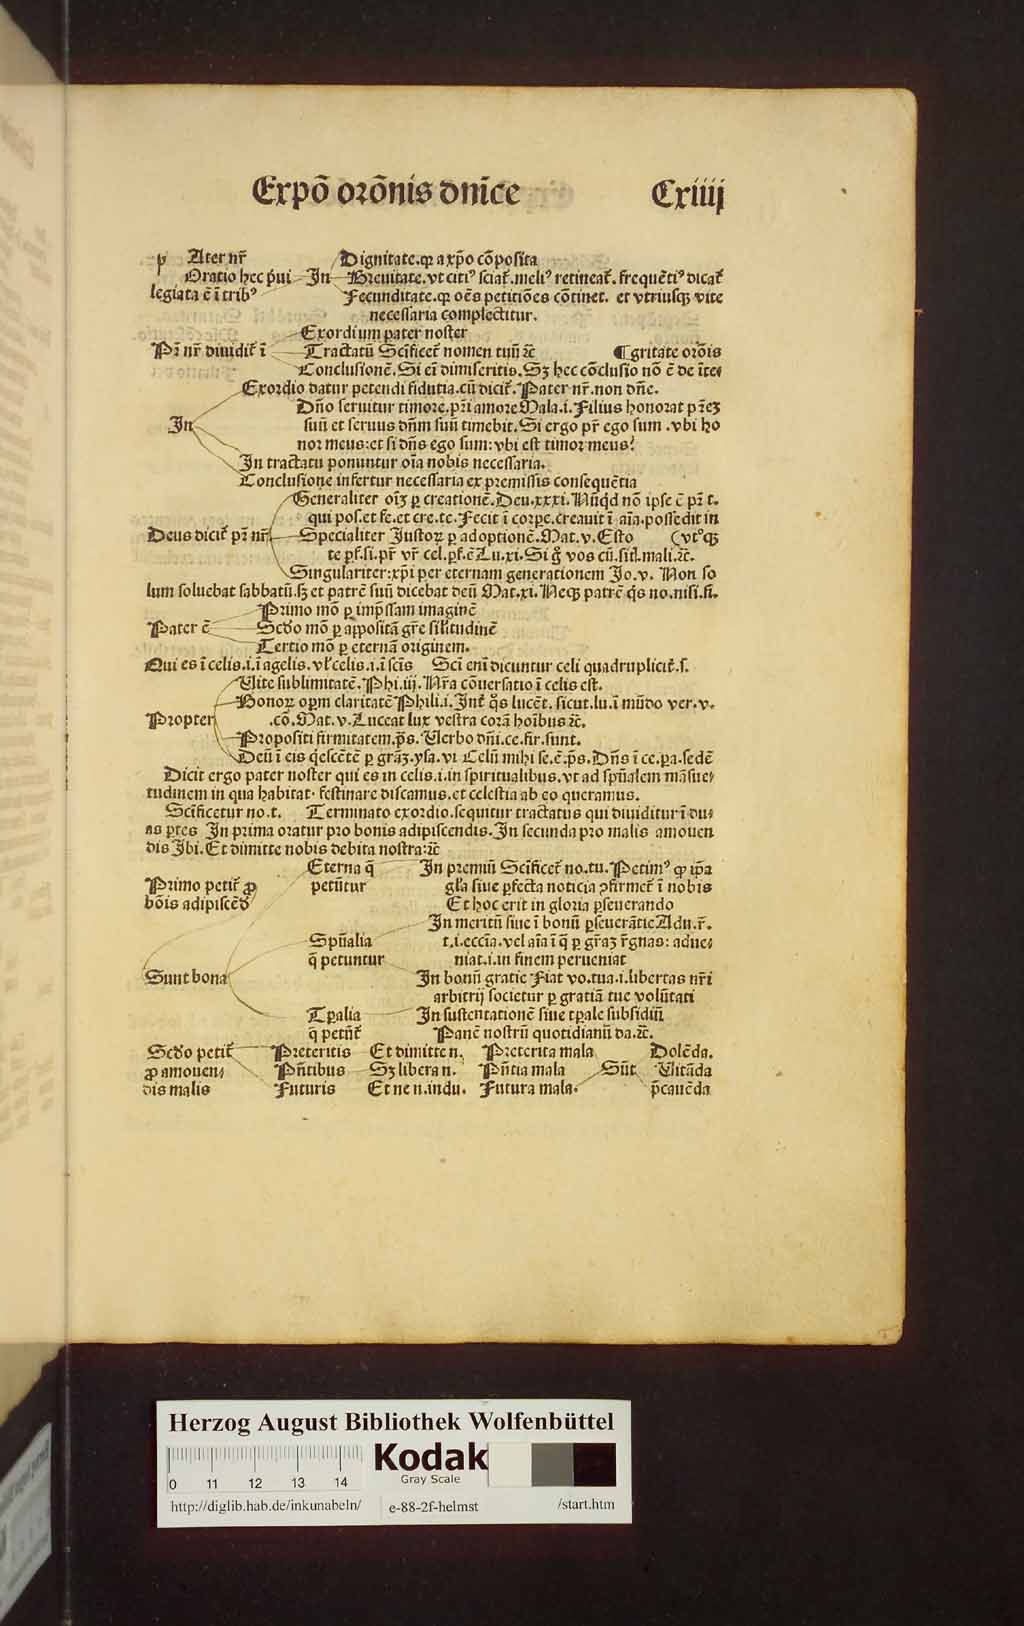 Expō orōnis dnīce Cxiiij
p Ater nr̄ Dignitate. qꝫ a xp̄o cōposita
Oratio hec p̄ui In Breuitate. vt citiꝰ sciat᷑. meliꝰ retineat᷑. frequētiꝰ dicat᷑
legiata ē ī tribꝰ Fecunditate. qꝫ oēs petitiōes cōtinet. et vtriusqꝫ vite
necessaria complectitur.
Exordium pater noster
Pr̄ nr̄ diuidit᷑ ī Tractatū Sc̄ificet᷑ nomen tuū ⁊c̄ ¶gritate orōis
Conclusionē. Si em̄ dimiseritis. Sꝫ hec cōclusio nō ē de īte⸗
Exordio datur petendi fidutia. cū dicit᷑. Pater nr̄. non dn̄e.
Dn̄o seruitur timore. pr̄i amore Mala. i. Filius honorat pr̄eꝫ
In suū et seruus dn̄m suū timebit. Si ergo pr̄ ego sum. vbi ho
nor meus: et si dn̄s ego sum: vbi est timor meus?
In tractatu ponuntur oīa nobis necessaria.
Conclusione infertur necessaria ex premissis consequētia
Generaliter oīꝫ ꝑ creationē. Deu. xxxi. Nūqd nō ipse ē pr̄ t.
qui pos. et fe. et cre. te. Fecit ī corpe. creauit ī aīa. possedit in
Deus dicit᷑ pr̄ nr̄ Specialiter Justoꝝ ꝑ adoptionē. Mat. v. Esto (vtºqꝫ
te pf. si. pr̄ vr̄ cel. pf. ē Lu. xi. Si g̊ vos cū. sit. mali. ⁊c̄.
Singulariter: xp̄i per eternam generationem Jo. v. Non so
lum soluebat sabbatū. sꝫ et patrē suū dicebat deū Mat. xi. Neqꝫ patrē qs no. nisi. fi.
Primo mō ꝑ imp̄ssam imaginē
Pater ē Sc̄do mō ꝑ appositā gr̄e sil̄itudinē
Tertio mō ꝑ eternā originem.
Qui es ī celis. i. ī āgelis. vl̓ celis. i. ī sc̄is Sc̄i eni dicuntur celi quadruplicit᷑. s.
Vite sublimitatē. Phi. iij. Nr̄a cōuersatio ī celis est.
Bonoꝝ opm claritatē Phili. i. Int᷑ q̊s lucēt. sicut. lu. ī mūdo ver. v.
Propter .cō. Mat. v. Luceat lux vestra corā hoībus ⁊c̄.
Propositi firmitatem. ps̄. Verbo dn̄i. ce. fir. sunt.
Deū ī eis q̄escētē ꝑ gr̄aꝫ. ysa. vi Celū mihi se. ē. ps̄. Dn̄s ī ce. pa. sedē
Dicit ergo pater noster qui es in celis. i. in spiritualibus. vt ad sp̄ualem māsue⸗
tudinem in qua habitat. festinare discamus. et celestia ab eo queramus.
Sc̄ificetur no. t. Terminato exordio. sequitur tractatus qui diuiditur ī du⸗
as ꝑtes In prima oratur pro bonis adipiscendis. In secunda pro malis amouen
dis Ibi. Et dimitte nobis debita nostra: ⁊c̄
Eterna q̄ In premiū Sc̄ificet᷑ no. tu. Petimꝰ qꝫ ip̄a
Primo petit᷑ ꝓ petūtur gl̓a siue ꝑfecta noticia ꝯfirmet᷑ ī nobis
bōis adipiscēd Et hoc erit in gloria ꝑseuerando
In meritū siue ī bonū ꝑseuerātie Adu. r̄.
Sp̄ualia t. i. ecc̄ia. vel aīa ī q̄ ꝑ gr̄aꝫ r̄gnas: adue⸗
q̄ petuntur niat. i. in finem perueniat
Sunt bona In bonū gratie Fiat vo. tua. i. libertas nr̄i
arbitrij societur ꝑ gratiā tue volūtati
Tp̄alia In sustentationē siue tp̄ale subsidiū
q̄ petūt᷑ Panē nostrū quotidianū da. ⁊c̄.
Sc̄do petit᷑ Preteritis Et dimitte n. Preterita mala Dolēda.
ꝓ amouen⸗ Pn̄tibus Sꝫ libera n. Pn̄tia mala Sūt Vitāda
dis malis Futuris Et ne n. indu. Futura mala. p̄cauēda
Herzog August Bibliothek Wolfenbüttel
Kodak
Gray Scale
0 11 12 13 14
http://diglib.hab.de/inkunabeln/ e-88-2f-helmst /start.htm